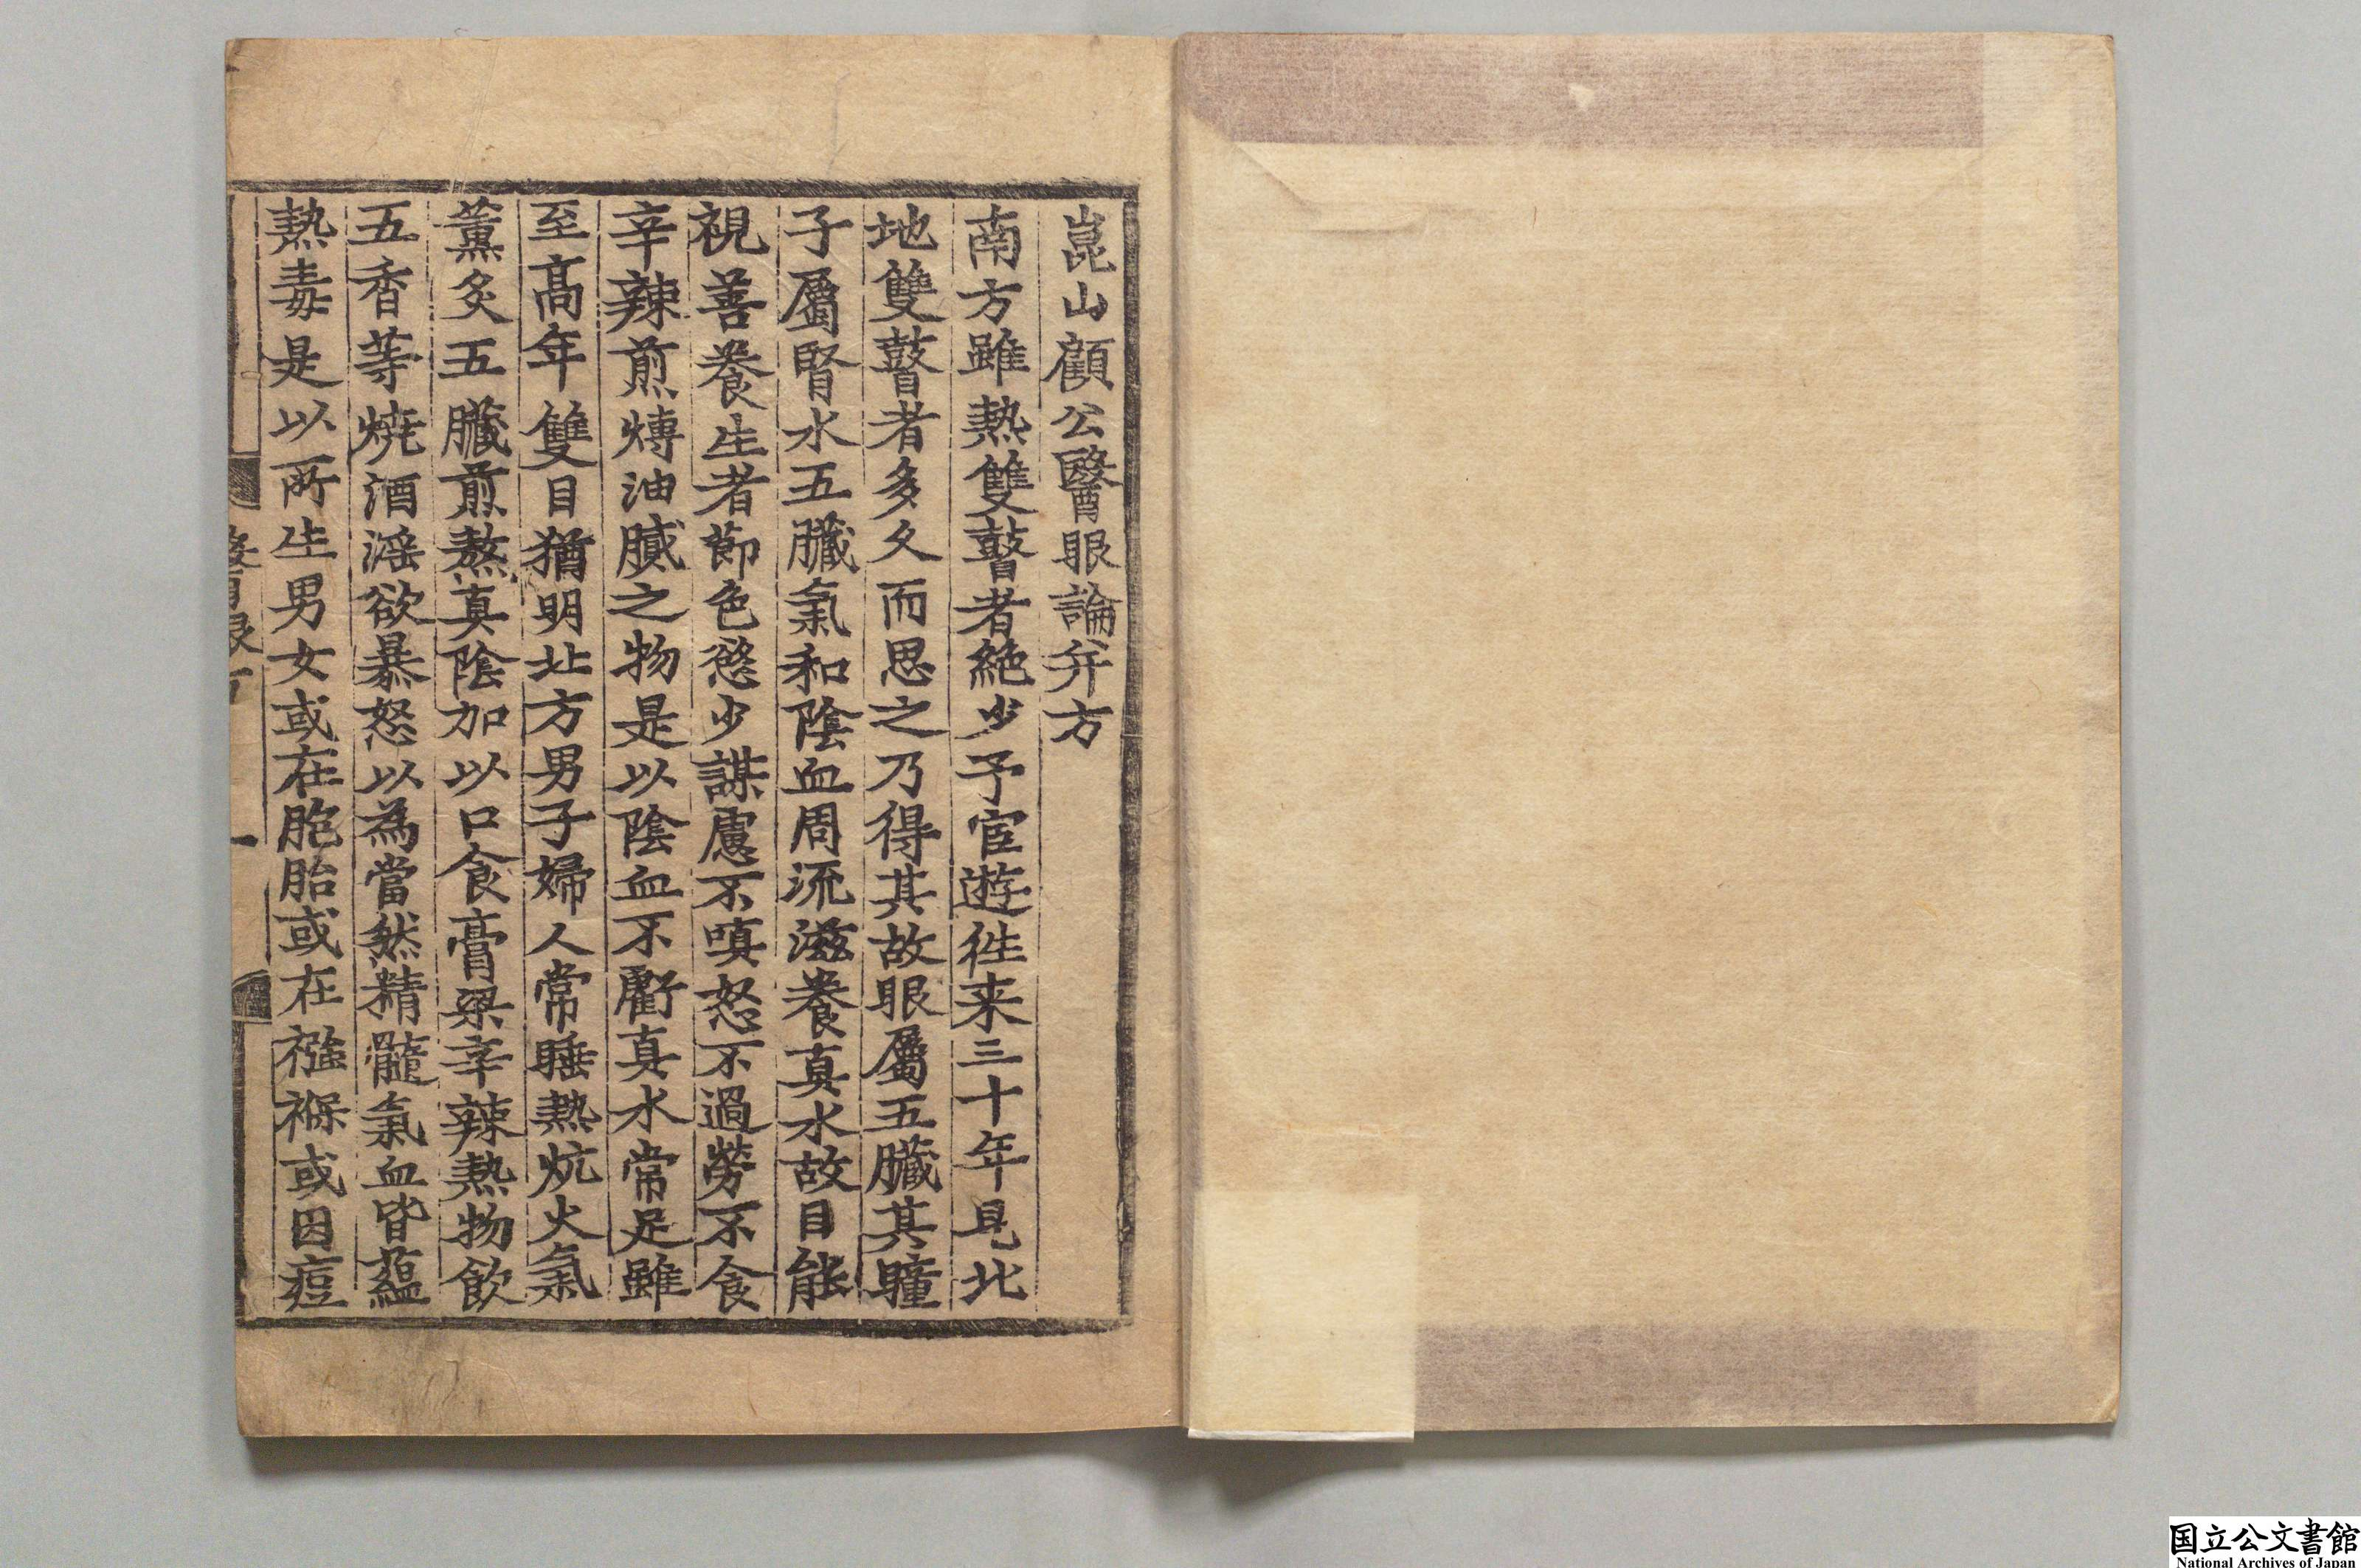 崑山顧公醫眼論并方
南方雖熱雙瞽者絶少予宦遊徃来三十年見北
地雙瞽者多久而思之乃得其故眼屬五臟其瞳
子屬腎水五臟氣和陰血周流滋養真水故目能
視善養生者節色慾少謀慮不嗔怒不過勞不食
辛辣煎煿油膩之物是以陰血不虧真水常足雖
至高年雙目猶明北方男子婦人常睡熱炕火氣
薰炙五臟煎熬真陰加以口食膏粱辛辣熱物飲
五香等燒酒滛欲暴怒以為當然精髓氣血皆蘊
熱毒是以所生男女或在胞胎或在襁褓或因痘
一
国立公文書館
National Archives of Japan